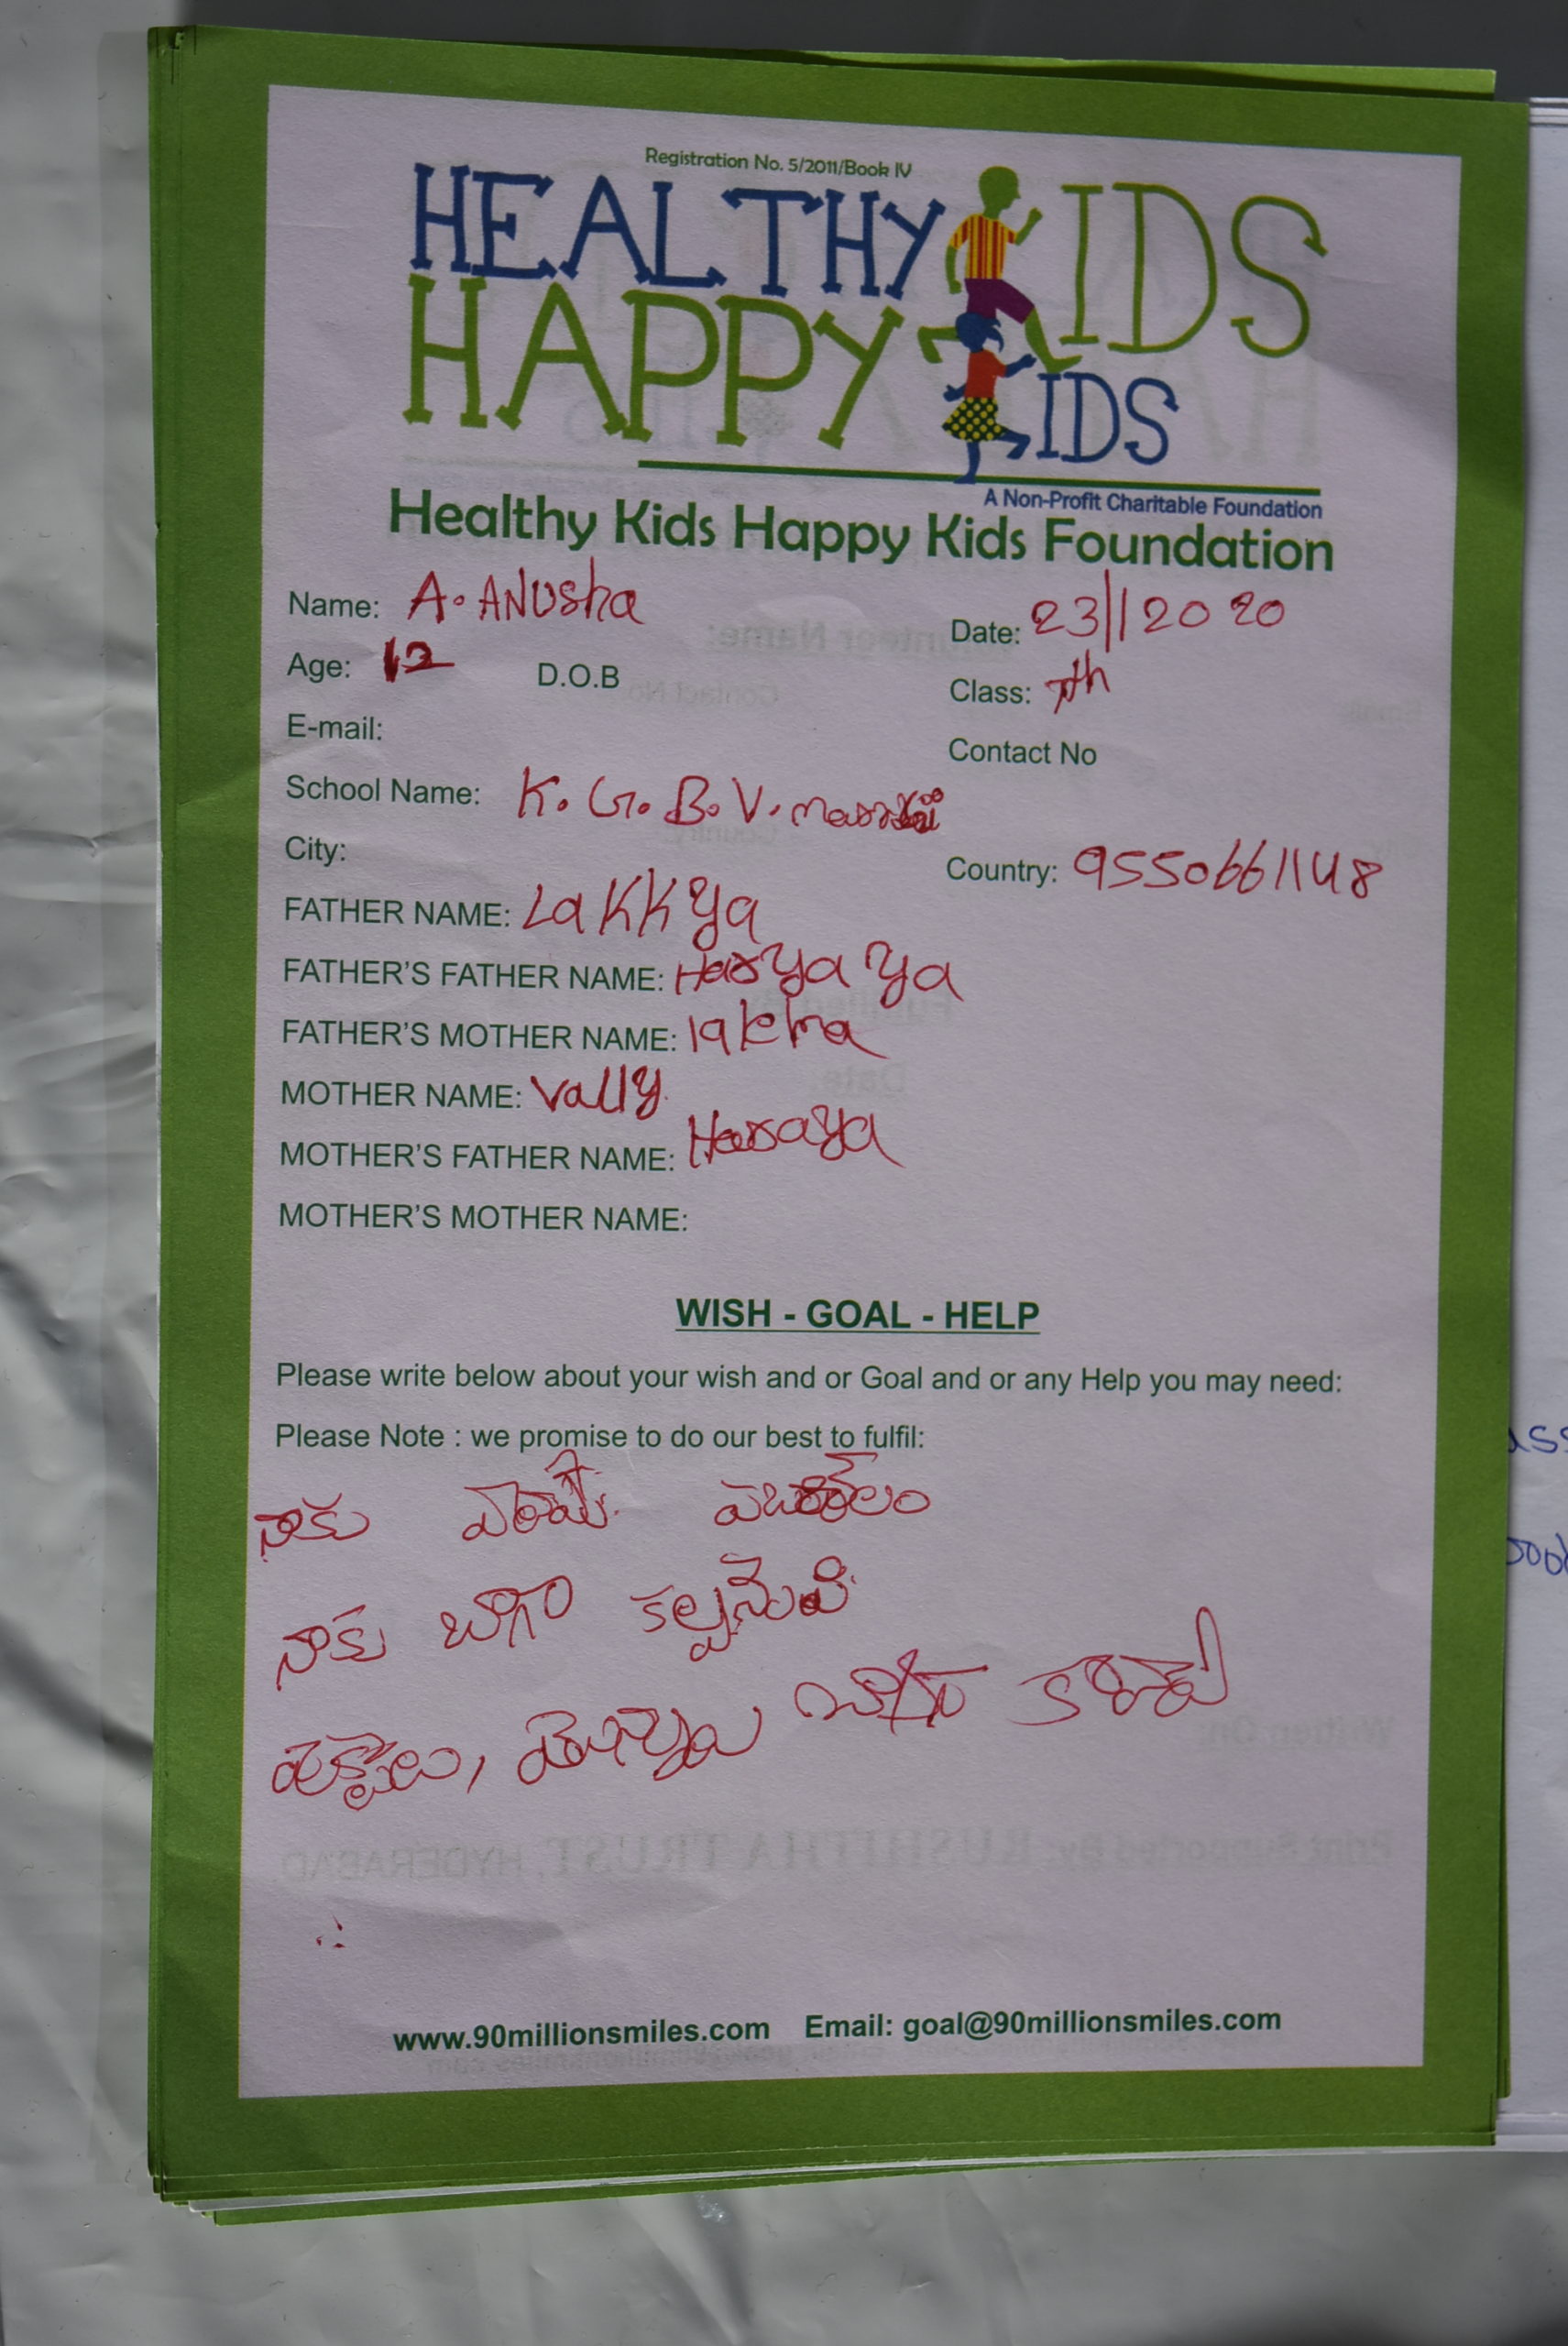 Registration No. 5/2011/Book IV
HEALTHY KIDS
HAPPY KIDS
A Non-Profit Charitable Foundation
Healthy Kids Happy Kids Foundation
Name: A. ANUSha
Date: 23/1/2020
Age: 12 D.O.B
Class: 7th
E-mail:
Contact No
School Name: K. G. B. V.
City:
Country: 9550661148
FATHER NAME: LaKKya
FATHER'S FATHER NAME: Haryaya
FATHER'S MOTHER NAME: lakha
MOTHER NAME: Vally
MOTHER'S FATHER NAME: Haraya
MOTHER'S MOTHER NAME:
WISH - GOAL - HELP
Please write below about your wish and or Goal and or any Help you may need:
Please Note : we promise to do our best to fulfil:
నాకు
నాకు బాగా
బాగా
www.90millionsmiles.com Email: goal@90millionsmiles.com